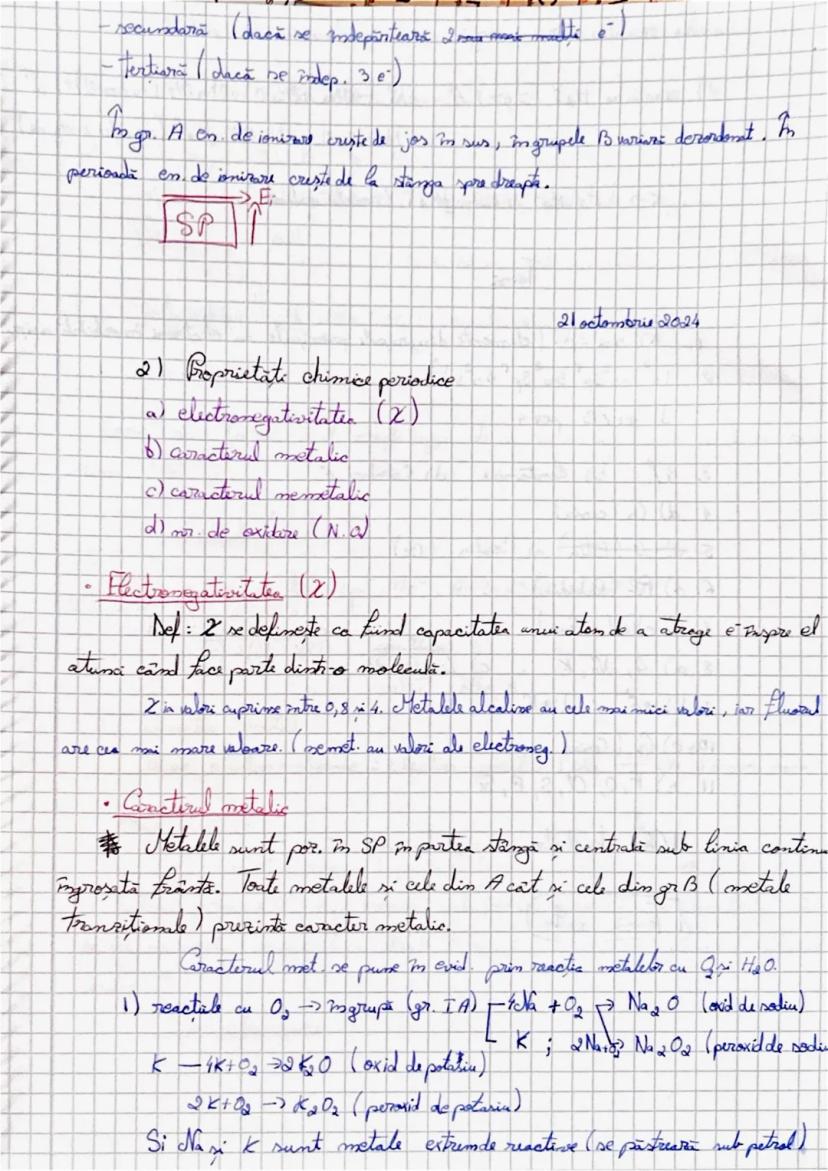 - secundară (dacă se îndepărtează 2 sau mai mulți e⁻)
- terțiară (dacă se îndep. 3 e⁻)
În gr. A en. de ionizare crește de jos în sus, în grupele B variază dezordonat. În
perioadă en. de ionizare crește de la stânga spre dreapta.
Ei
SP
21 octombrie 2024
2) Proprietăți chimice periodice
a) electronegativitatea (χ)
b) caracterul metalic
c) caracterul nemetalic
d) nr. de oxidare (N.O)
• Electronegativitatea (χ)
Def: χ se definește ca fiind capacitatea unui atom de a atrage e⁻ înspre el
atunci când face parte dintr-o moleculă.
χ ia valori cuprinse între 0,8 și 4. Metalele alcaline au cele mai mici valori, iar fluorul
are cea mai mare valoare. (nemet. au valori ale electroneg.)
• Caracterul metalic
Metalele sunt poz. în SP în partea stângă și centrală sub linia continu
îngroșată frântă. Toate metalele și cele din A cât și cele din gr B (metale
tranziționale) prezintă caracter metalic.
Caracterul met. se pune în evid. prin reacția metalelor cu O₂ și H₂O.
1) reacțiile cu O₂ → în grupă (gr. I A) 4Na + O₂ → Na₂O (oxid de sodiu)
K ; 2Na+O₂ → Na₂O₂ (peroxid de sodiu
K — 4K+O₂ → 2K₂O (oxid de potasiu)
2K+O₂ → K₂O₂ (peroxid de potasiu)
Și Na și K sunt metale extrem de reactive (se păstrează sub petrol)